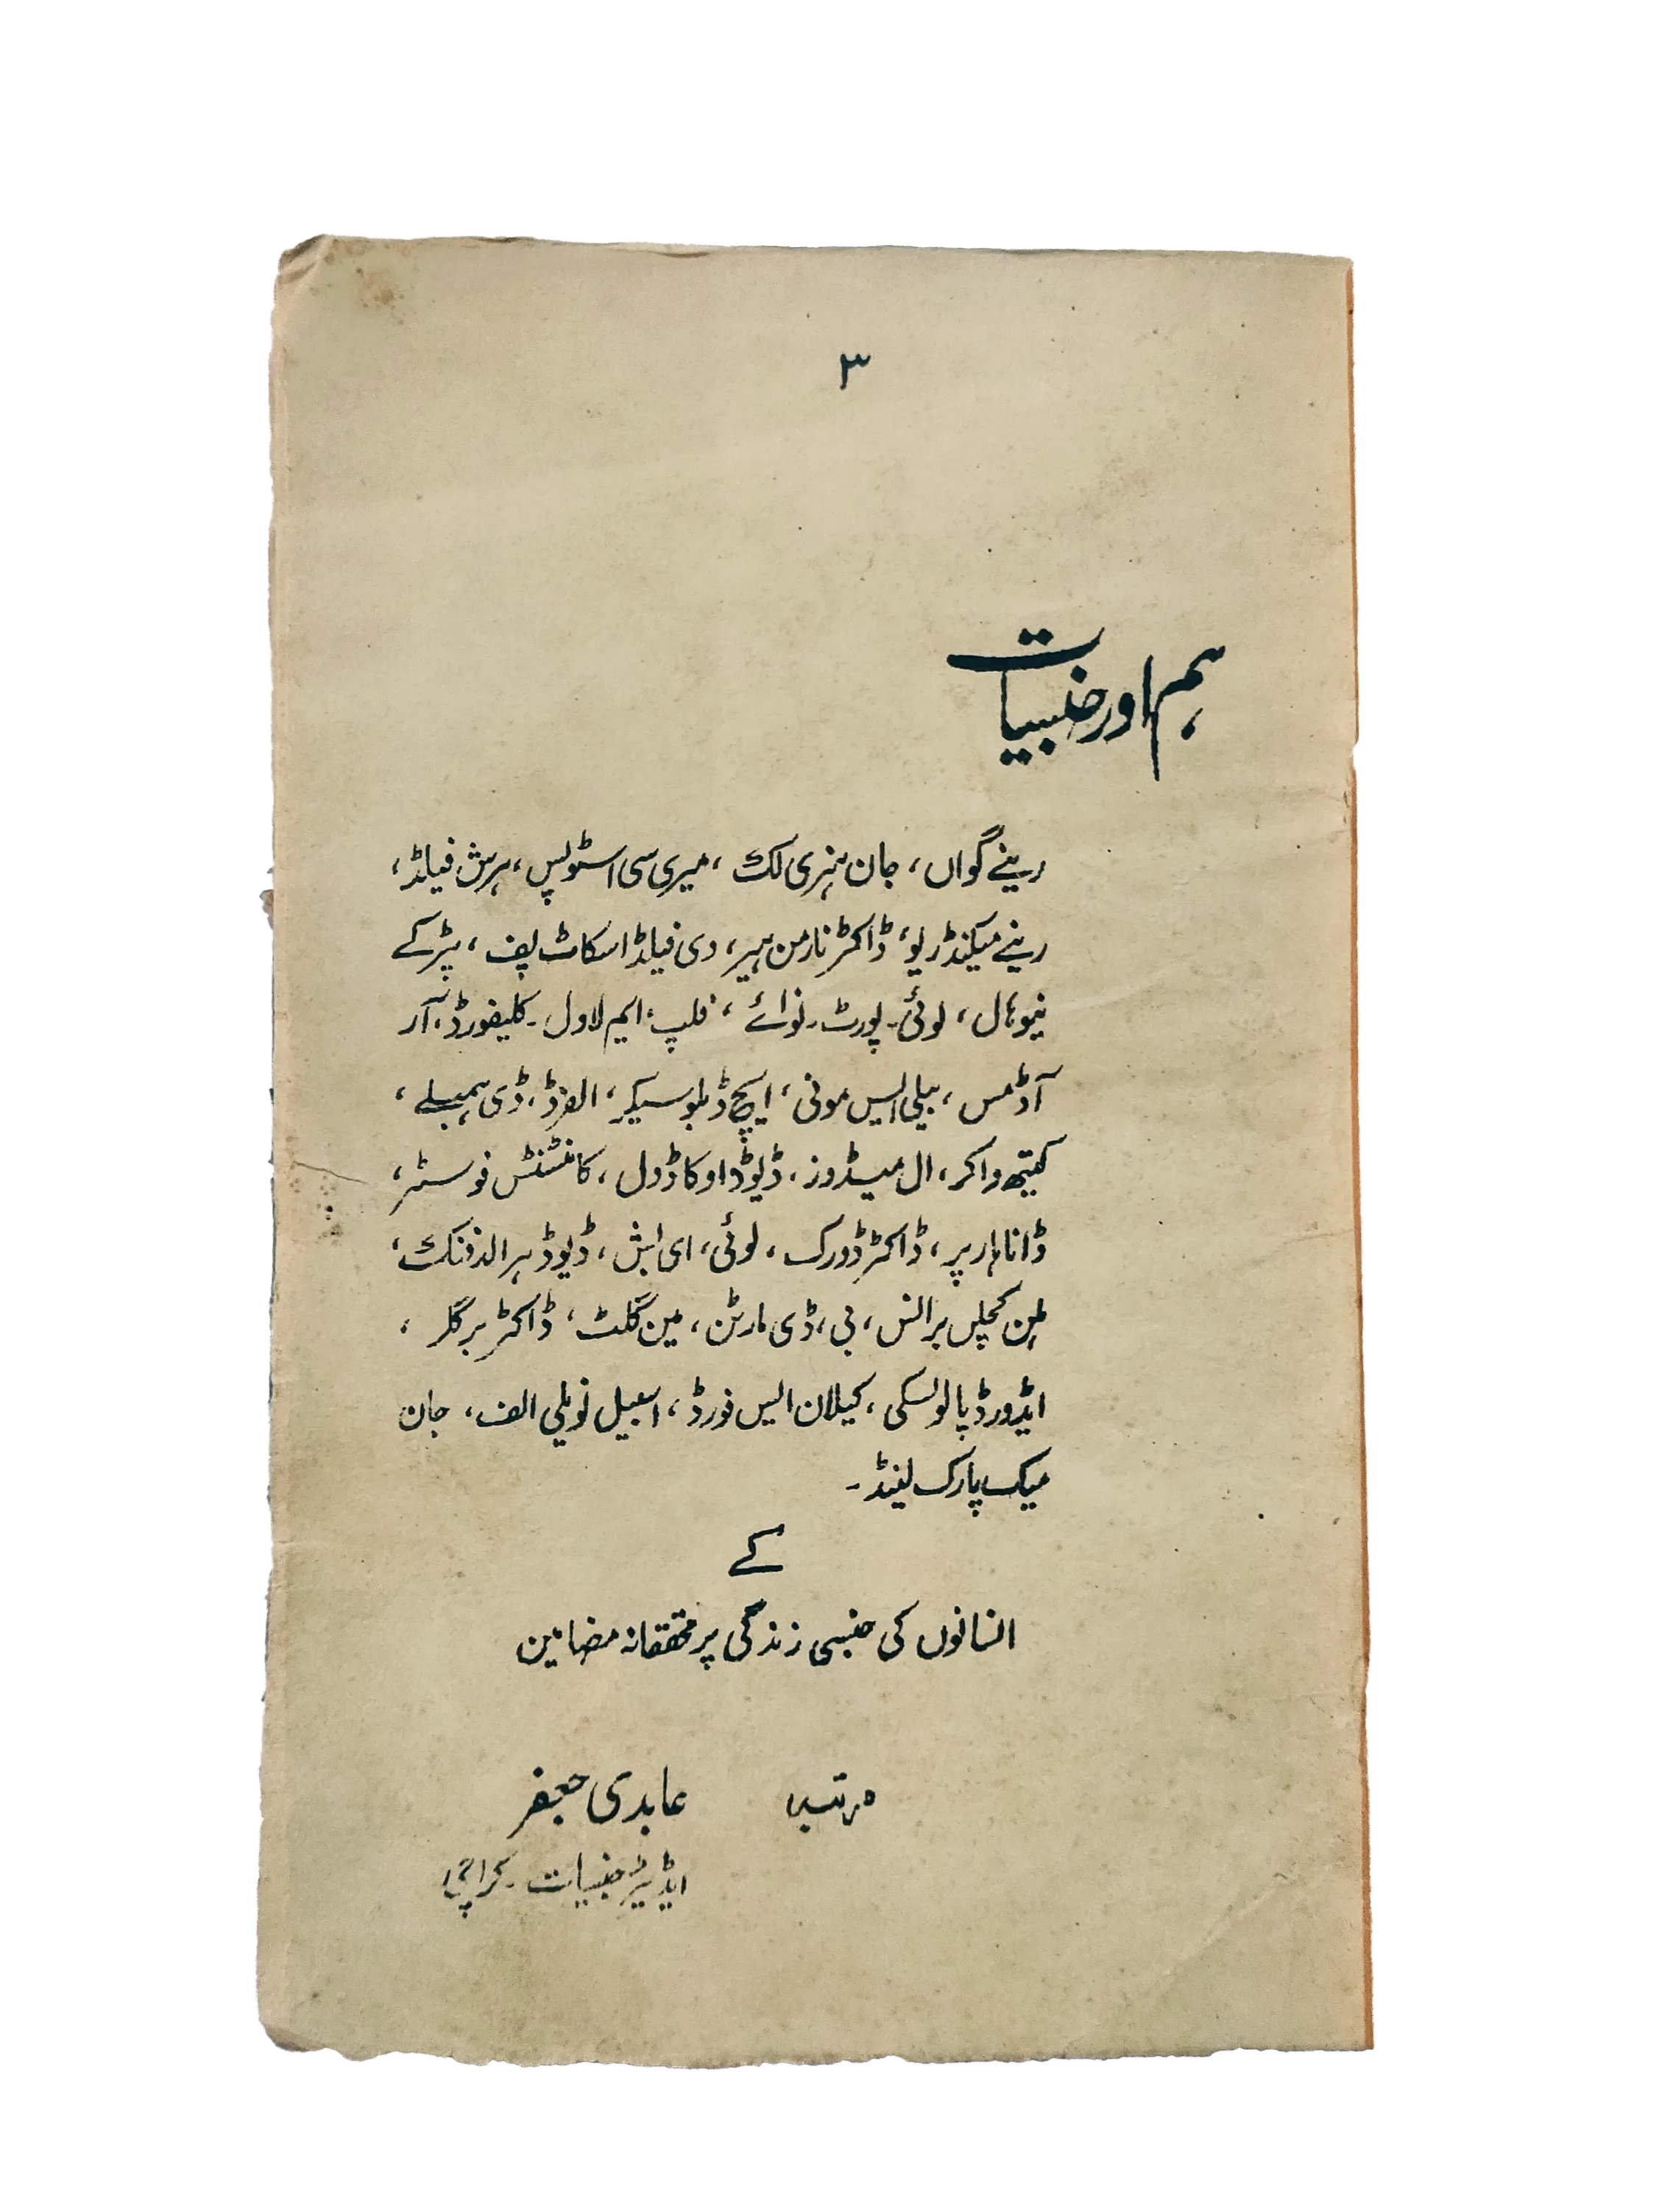 ۳
ہم اور جنسیات
رینے گواں، جان ہنری لک، میری سی اسٹوپس، ہرش فیلڈ،
رینے میکنڈریو، ڈاکٹر نارمن ہیر، دی فیلڈ اسکاٹ پف، پٹر کے
نیوہال، لوئی۔ پورٹ۔ نوائے، فلپ، ایم لاول۔ کلیفورڈ، آر
آڈمس، بیلی ایس مونی، ایچ ڈبلو سیکر، الفرڈ، ڈی ہمبلے،
کیتھ واکر، ال میڈوز، ڈیوڈ او کاڈول، کانسٹنس فوسٹر،
ڈانا ہارپر، ڈاکٹر ڈورک، لوئی، ای ابش، ڈیوڈ ہرالڈ فنک،
برالنس، بی، ڈی مارٹن، مین گلٹ، ڈاکٹر برگلر،
ایڈورڈ پالوسکی، کیلان ایس فورڈ، اسبیل نویلی الف، جان
میک پارک لینڈ۔
کے
انسانوں کی جنسی زندگی پر محققانہ مضامین
مرتبہ عابدی جعفر
ایڈیٹر جنسیات۔ کراچی